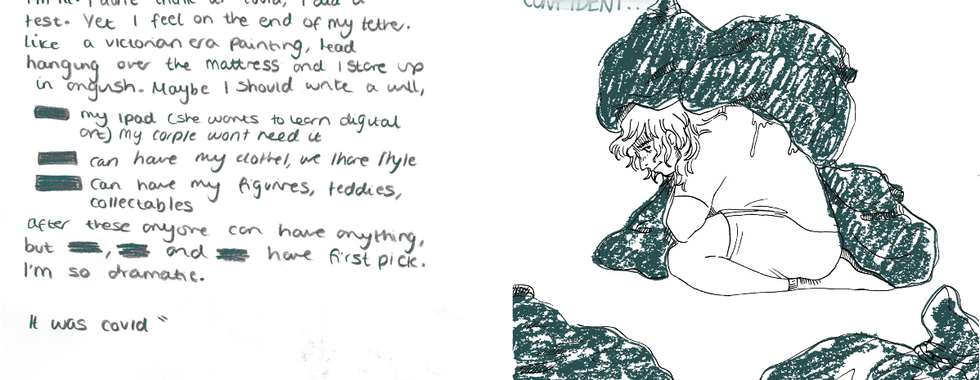 test. Yet I feel on the end of my tether.
Like a victorian era painting, head
hanging over the mattress and I stare up
in anguish. Maybe I should write a will,
my ipad (she wants to learn digital
art) my corpse wont need it
can have my clothes, we share style
can have my figures, teddies,
collectables
after these anyone can have anything,
but , and have first pick.
I'm so dramatic.
It was covid "
CONFIDENT..